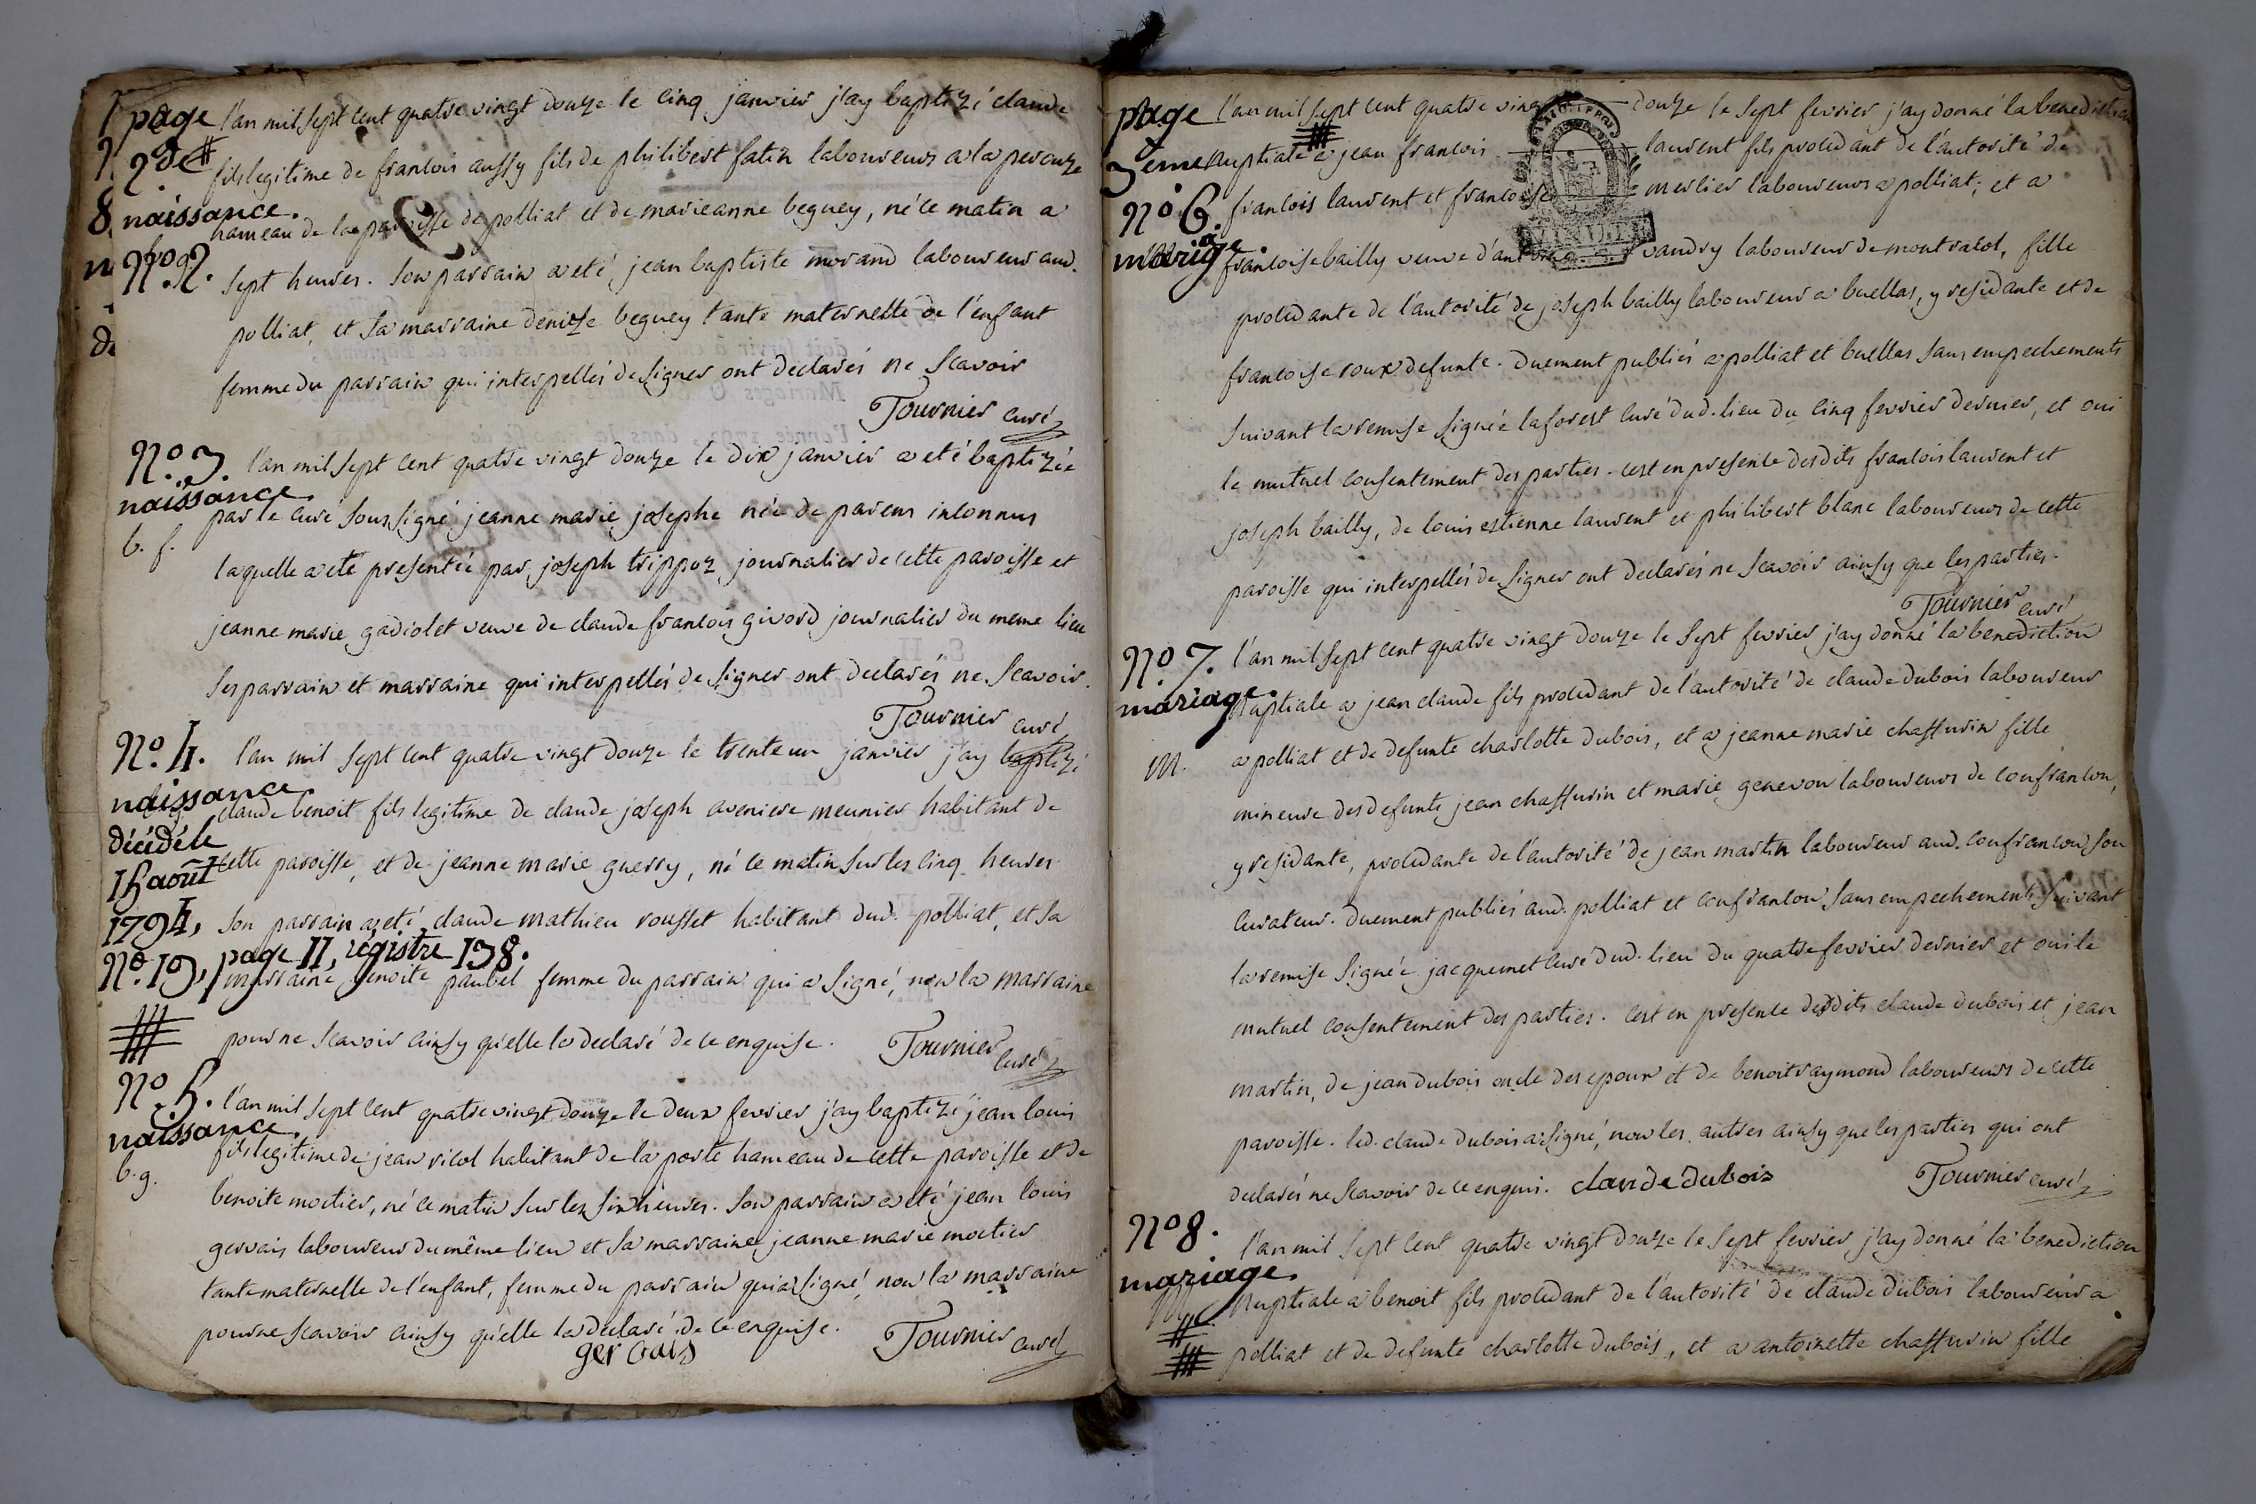 page
2de #
naissance.
No. 2.
l'an mil sept cent quatre vingt douze le cinq janvier j'ay baptizé claude
fils legitime de francois aussy fils de philibert fatin laboureurs a la perouze
hameau de la paroisse de polliat et de marieanne beguey, né ce matin a
sept heures. son parrain a eté jean baptiste morand laboureur aud.
polliat, et sa marraine denize beguey tante maternelle de l'enfant
femme du parrain qui interpellés de signer ont declarés ne scavoir
Tournier curé
No. 3.
naissance.
b. f.
l'an mil sept cent quatre vingt douze le dix janvier a eté baptizée
par le curé soussigné jeanne marie josephe née de parens inconnus
laquelle a eté presentée par joseph trippoz journalier de cette paroisse et
jeanne marie gadiolet veuve de claude francois givord journalier du meme lieu
ses parrain et marraine qui interpellés de signer ont declarés ne scavoir.
Tournier curé
No. 4.
naissance
décédé le
15 août
1794,
No. 19, page 11, régistre 138.
l'an mil sept cent quatre vingt douze le trente un janvier j'ay baptizé
claude benoit fils legitime de claude joseph aveniere meunier habitant de
cette paroisse, et de jeanne marie guerry, né ce matin sur les cinq heures
son parrain a eté claude mathieu rousset habitant dud. polliat, et sa
marraine benoite paubel femme du parrain qui a signé, non la marraine
pour ne scavoir ainsy qu'elle l'a declaré de ce enquise.
Tournier curé
No. 5.
naissance.
b. g.
l'an mil sept cent quatre vingt douze le deux fevrier j'ay baptizé jean louis
fils legitime de jean ricol habitant de la poste hameau de cette paroisse et de
benoite moetier, né ce matin sur les six heures. son parrain a eté jean louis
gervais laboureur du même lieu et sa marraine jeanne marie moetier
tante maternelle de l'enfant, femme du parrain qui a signé, non la marraine
pour ne scavoir ainsy qu'elle l'a declaré de ce enquise.
gervais
Tournier curé
page
3eme
No. 6.
mariage.
l'an mil sept cent quatre vingt douze le sept fevrier j'ay donné la benediction
nuptiale a jean francois laurent fils procedant de l'autorité de
francois laurent et francoise merlier laboureurs a polliat; et a
francoise bailly veuve d'antoine vaudry laboureur de montracol, fille
procedante de l'autorité de joseph bailly laboureur a buellas, y residante et de
francoise roux defunte. duement publiés a polliat et buellas sans empechements
suivant la remise signée laforest curé dud. lieu du cinq fevrier dernier, et oui
le mutuel consentement des parties. cest en presence desdits francois laurent et
joseph bailly, de louis estienne laurent et philibert blanc laboureurs de cette
paroisse qui interpellés de signer ont declarés ne scavoir ainsy que les parties.
Tournier curé
No. 7.
mariage.
m.
l'an mil sept cent quatre vingt douze le sept fevrier j'ay donné la benediction
nuptiale a jean claude fils procedant de l'autorité de claude dubois laboureur
a polliat et de defunte charlotte dubois, et a jeanne marie chaffurin fille
mineure des defunts jean chaffurin et marie genevou laboureurs de confrancon,
y residante, procedante de l'autorité de jean martin laboureur aud. confrancon son
curateur. duement publiés aud. polliat et confrancon sans empechements suivant
la remise signée jacquemet curé dud. lieu du quatre fevrier dernier et oui le
mutuel consentement des parties. cest en presence desdits claude dubois et jean
martin, de jean dubois oncle des epoux et de benoit raymond laboureurs de cette
paroisse. led. claude dubois a signé, non les autres ainsy que les parties qui ont
declarés ne scavoir de ce enquis. claude dubois
Tournier curé
No 8.
mariage.
l'an mil sept cent quatre vingt douze le sept fevrier j'ay donné la benediction
nuptiale a benoit fils procedant de l'autorité de claude dubois laboureur a
polliat et de defunte charlotte dubois, et a antoinette chaffurin fille